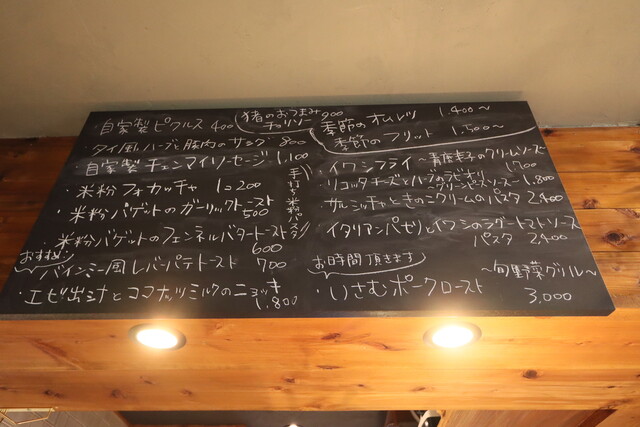 ・自家製ピクルス 400
タイ風ハーブと豚肉のサラダ 800
自家製チェンマイソーセージ 1,100
・米粉フォカッチャ 1コ200
・米粉バゲットのガーリックトースト 500
・米粉バゲットのフェンネルバタートースト 600
おすすめ
バインミー風レバーパテトースト 700
・エビ出汁とココナッツミルクのニョッキ 1,800
猪のおつまみチョリソー 900
手打ち米粉パスタ
季節のオムレツ 1,400〜
季節のフリット 1,500〜
・イワシフライ〜青唐辛子のクリームソース 1700
・リコッタチーズとハーブのラビオリ
〜グリーンピースソース〜 1,800
・サルシッチャときのこクリームのパスタ 2,400
・イタリアンパセリとイワシのラグートマトソース
パスタ 2,400
お時間頂きます
・いさむポークロースト
〜旬野菜グリル〜
3,000